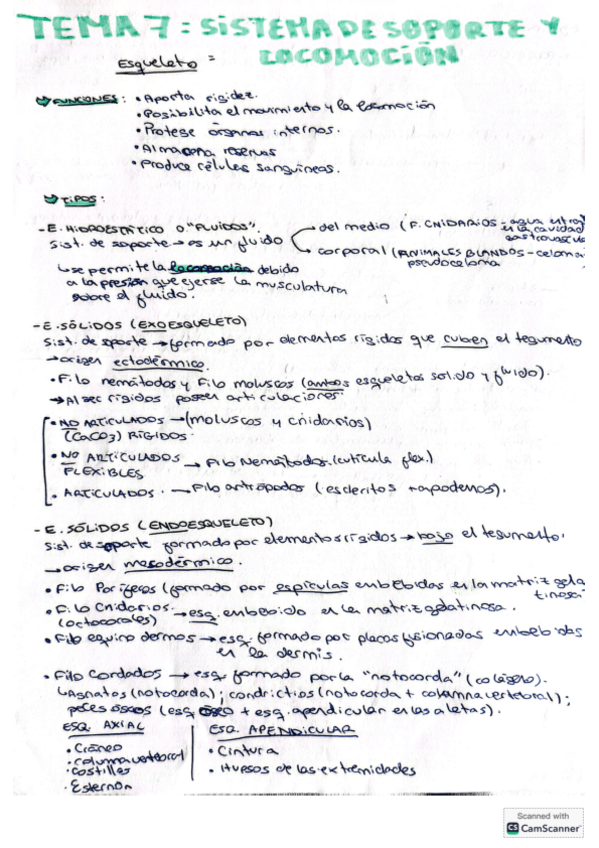 TEMA 7: SISTEMA DE SOPORTE Y
LOCOMOCIÓN
Esqueleto =
FUNCIONES: • Aporta rigidez.
• Posibilita el movimiento y la locomoción
• Protege órganos internos.
• Almacena reservas
• Produce células sanguíneas.
TIPOS:
- E. HIDROESTÁTICO O "FLUIDOS".
Sist. de soporte → es un fluido
del medio (F. CNIDARIOS - agua entra
en la cavidad
gastrovascu
corporal (ANIMALES BLANDOS - celoma
pseudoceloma
↳ se permite la locomoción debido
a la presión que ejerse la musculatura
sobre el fluido.
- E. SÓLIDOS (EXOESQUELETO)
Sist. de soporte → formado por elementos rígidos que cubren el tegumento
→ origen ectodérmico.
• Filo nemátodos y Filo moluscos (ambos esqueletos solido y fluido).
→ Al ser rígidos poseen articulaciones:
• NO ARTICULADOS → (moluscos y cnidarios)
(CaCO3) RÍGIDOS.
• NO ARTICULADOS
FLEXIBLES → Filo Nemátodos. (cutícula flex.)
• ARTICULADOS. → Filo artrópodos (escleritos + apodemos).
- E. SÓLIDOS (ENDOESQUELETO)
Sist. de soporte formado por elementos rígidos → bajo el tegumento.
→ origen mesodérmico.
• Filo Poríferos (formado por espículas embebidas en la matriz gela
tinosa)
• Filo Cnidarios. → esq. embebido en la matriz gelatinosa.
(octocorales)
• Filo equinodermos → esq. formado por placas fusionadas embebidas
en la dermis.
• Filo Cordados → esq. formado por la "notocorda" (colágeno).
↳ agnatos (notocorda); condrictios (notocorda + columna vertebral);
peces óseos (esq. óseo + esq. apendicular en las aletas).
ESQ. AXIAL
• Cráneo
• columna vertebral
• costillas
• Esternón
ESQ. APENDICULAR
• Cintura
• Huesos de las extremidades
Scanned with
CS CamScanner